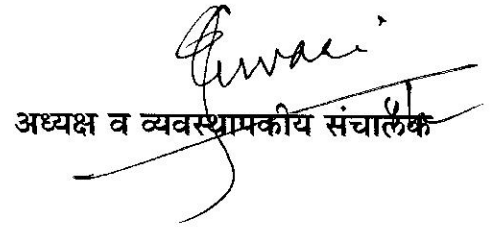 अध्यक्ष व व्यवस्थापकीय संचालक